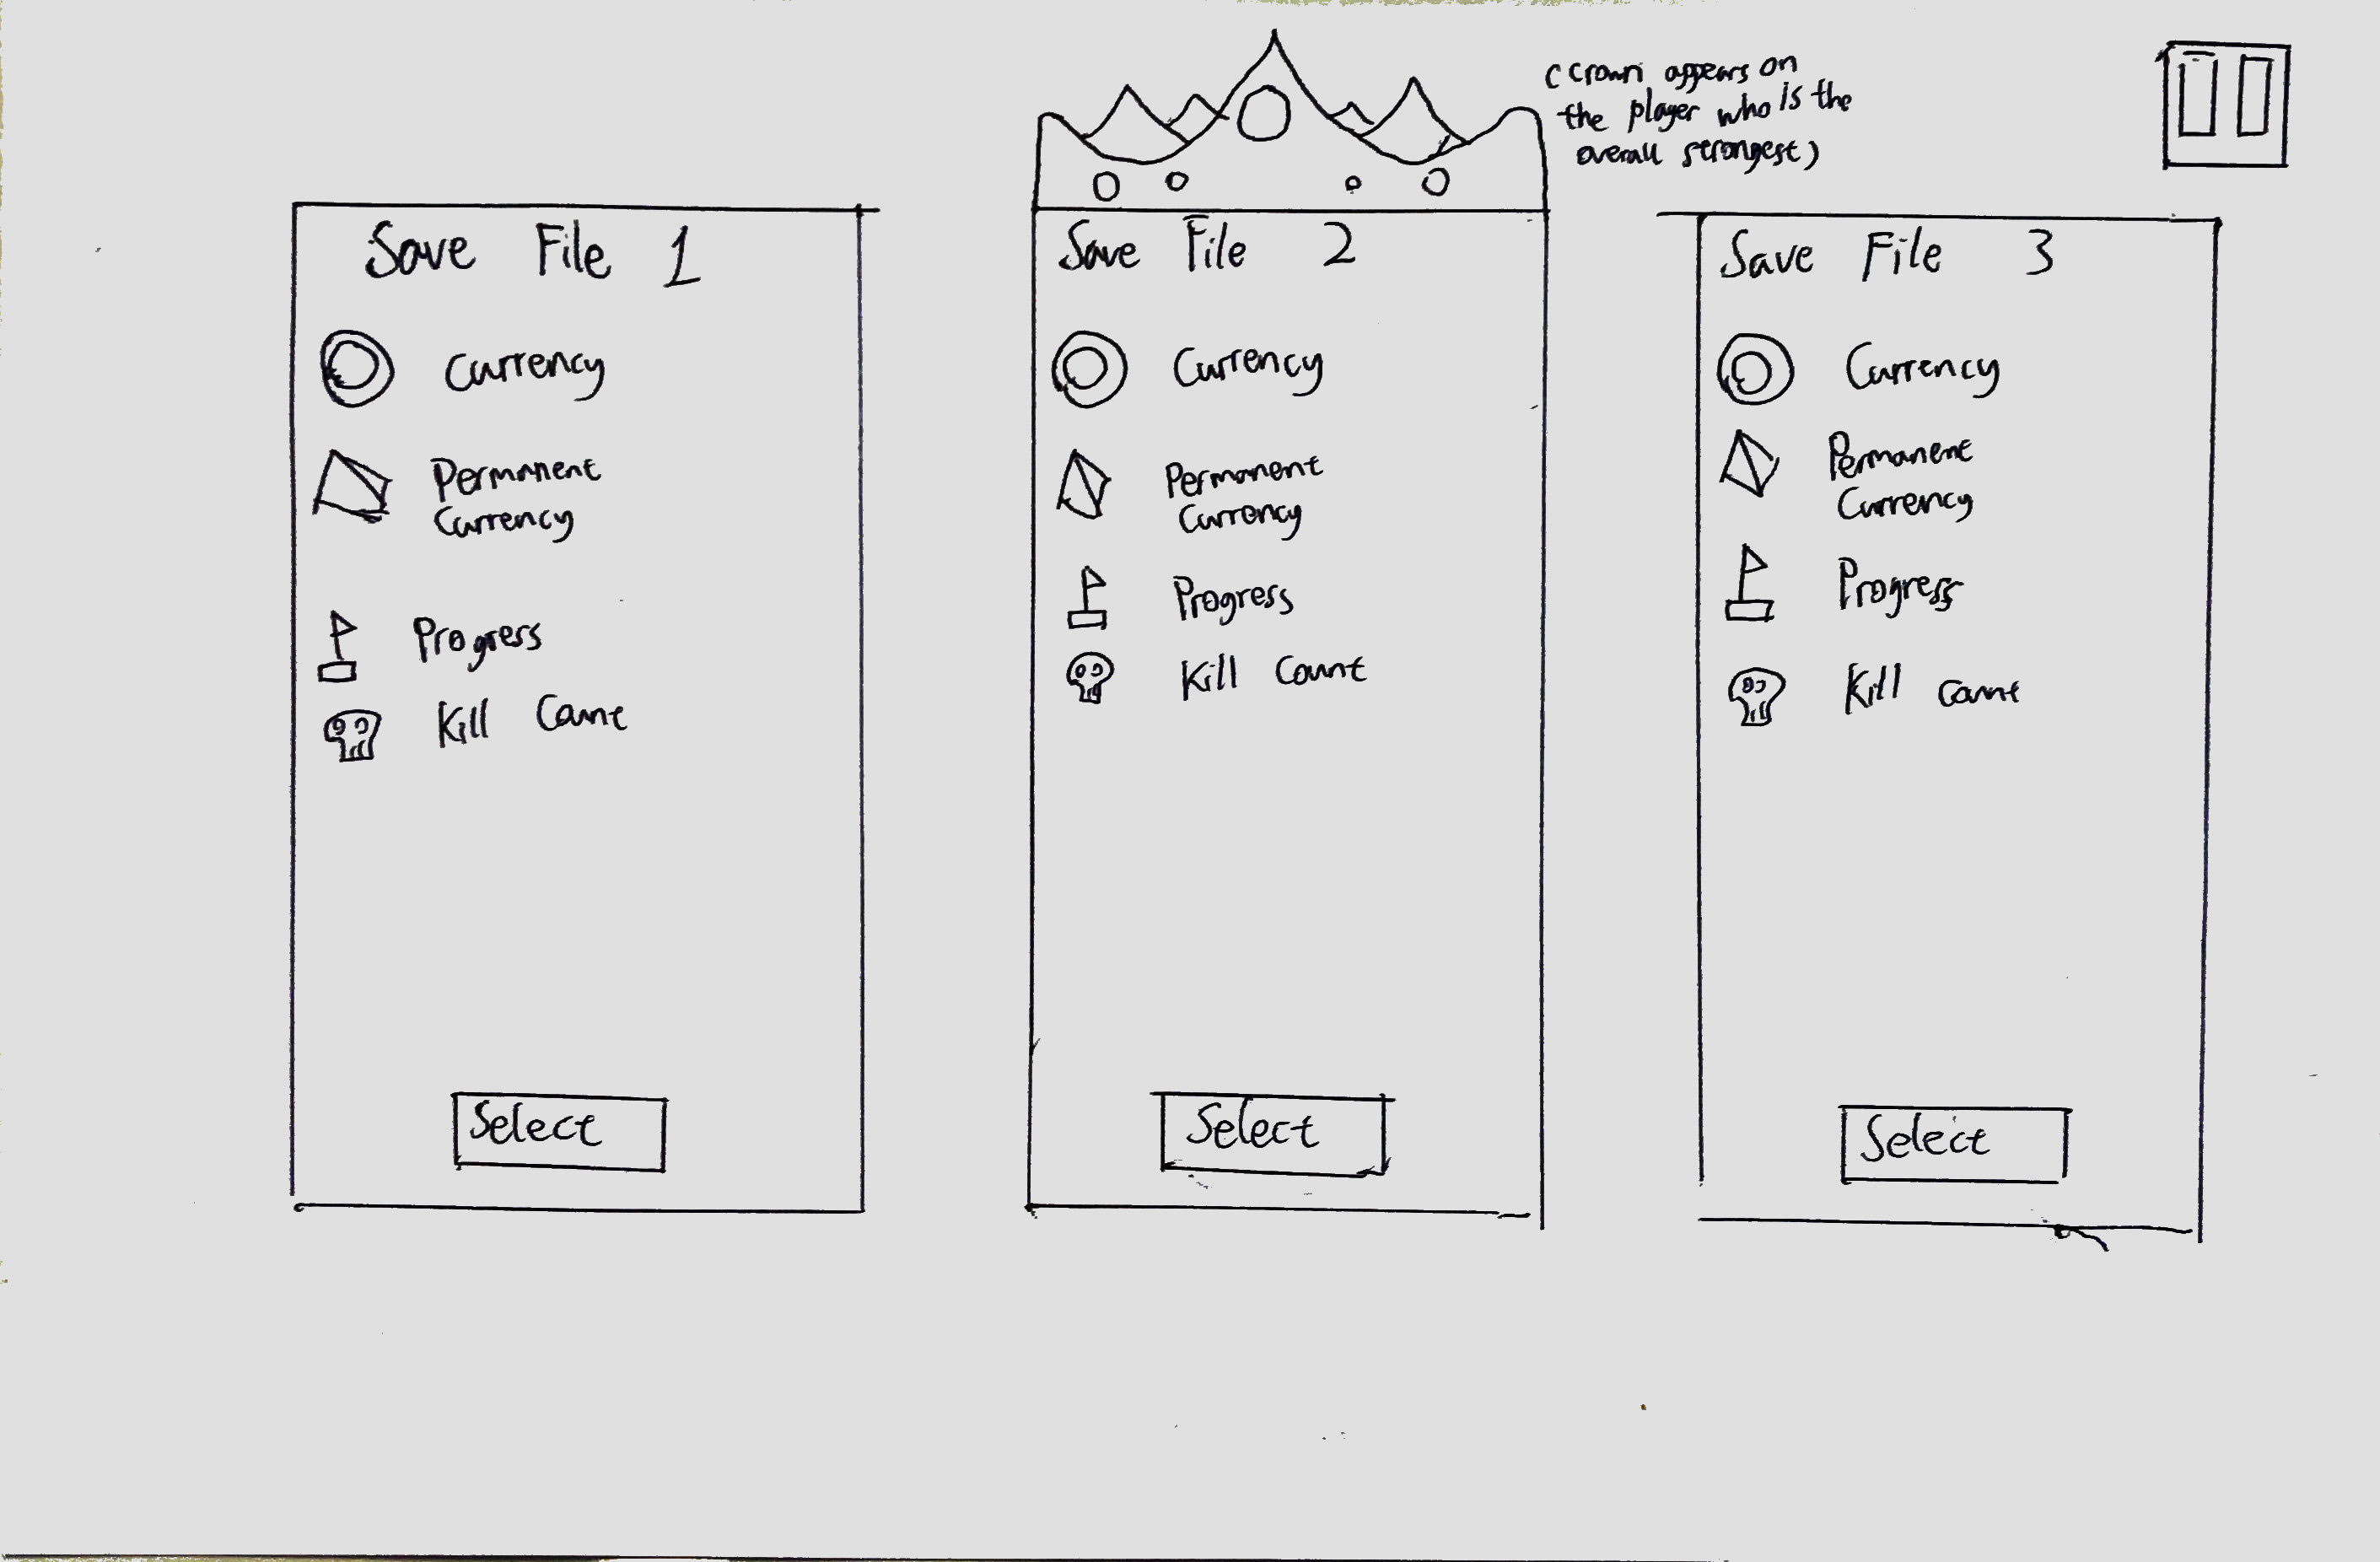 (Crown appears on
the player who is the
overall strongest)
Save File 1
Currency
Permanent
Currency
Progress
Kill Count
Select
Save File 2
Currency
Permanent
Currency
Progress
Kill Count
Select
Save File 3
Currency
Permanent
Currency
Progress
Kill Count
Select